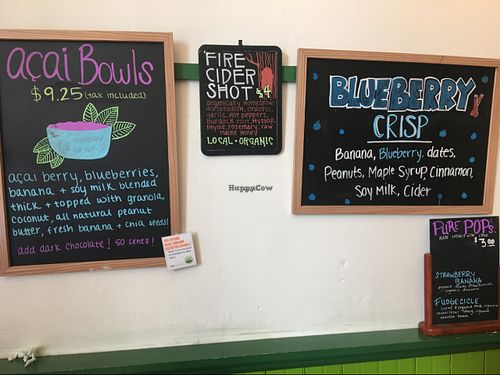 açai Bowls
$9.25 (tax included)
açai berry, blueberries,
banana + soy milk blended
thick + topped with granola,
coconut, all natural peanut
butter, fresh banana + chia seeds!
add dark chocolate! 50 cents!
FIRE
CIDER
SHOT
$4
organically homegrown
horseradish, onions,
garlic, hot peppers,
burdock root, hyssop,
thyme, rosemary, raw
maine honey
LOCAL · ORGANIC
HappyCow
BLUEBERRY
CRISP
Banana, Blueberry, dates,
Peanuts, Maple Syrup, Cinnamon,
Soy Milk, Cider
PURE POPS
MADE LOCALLY WITH LOVE
$3.00
STRAWBERRY
BANANA
organic banana
FUDGECICLE